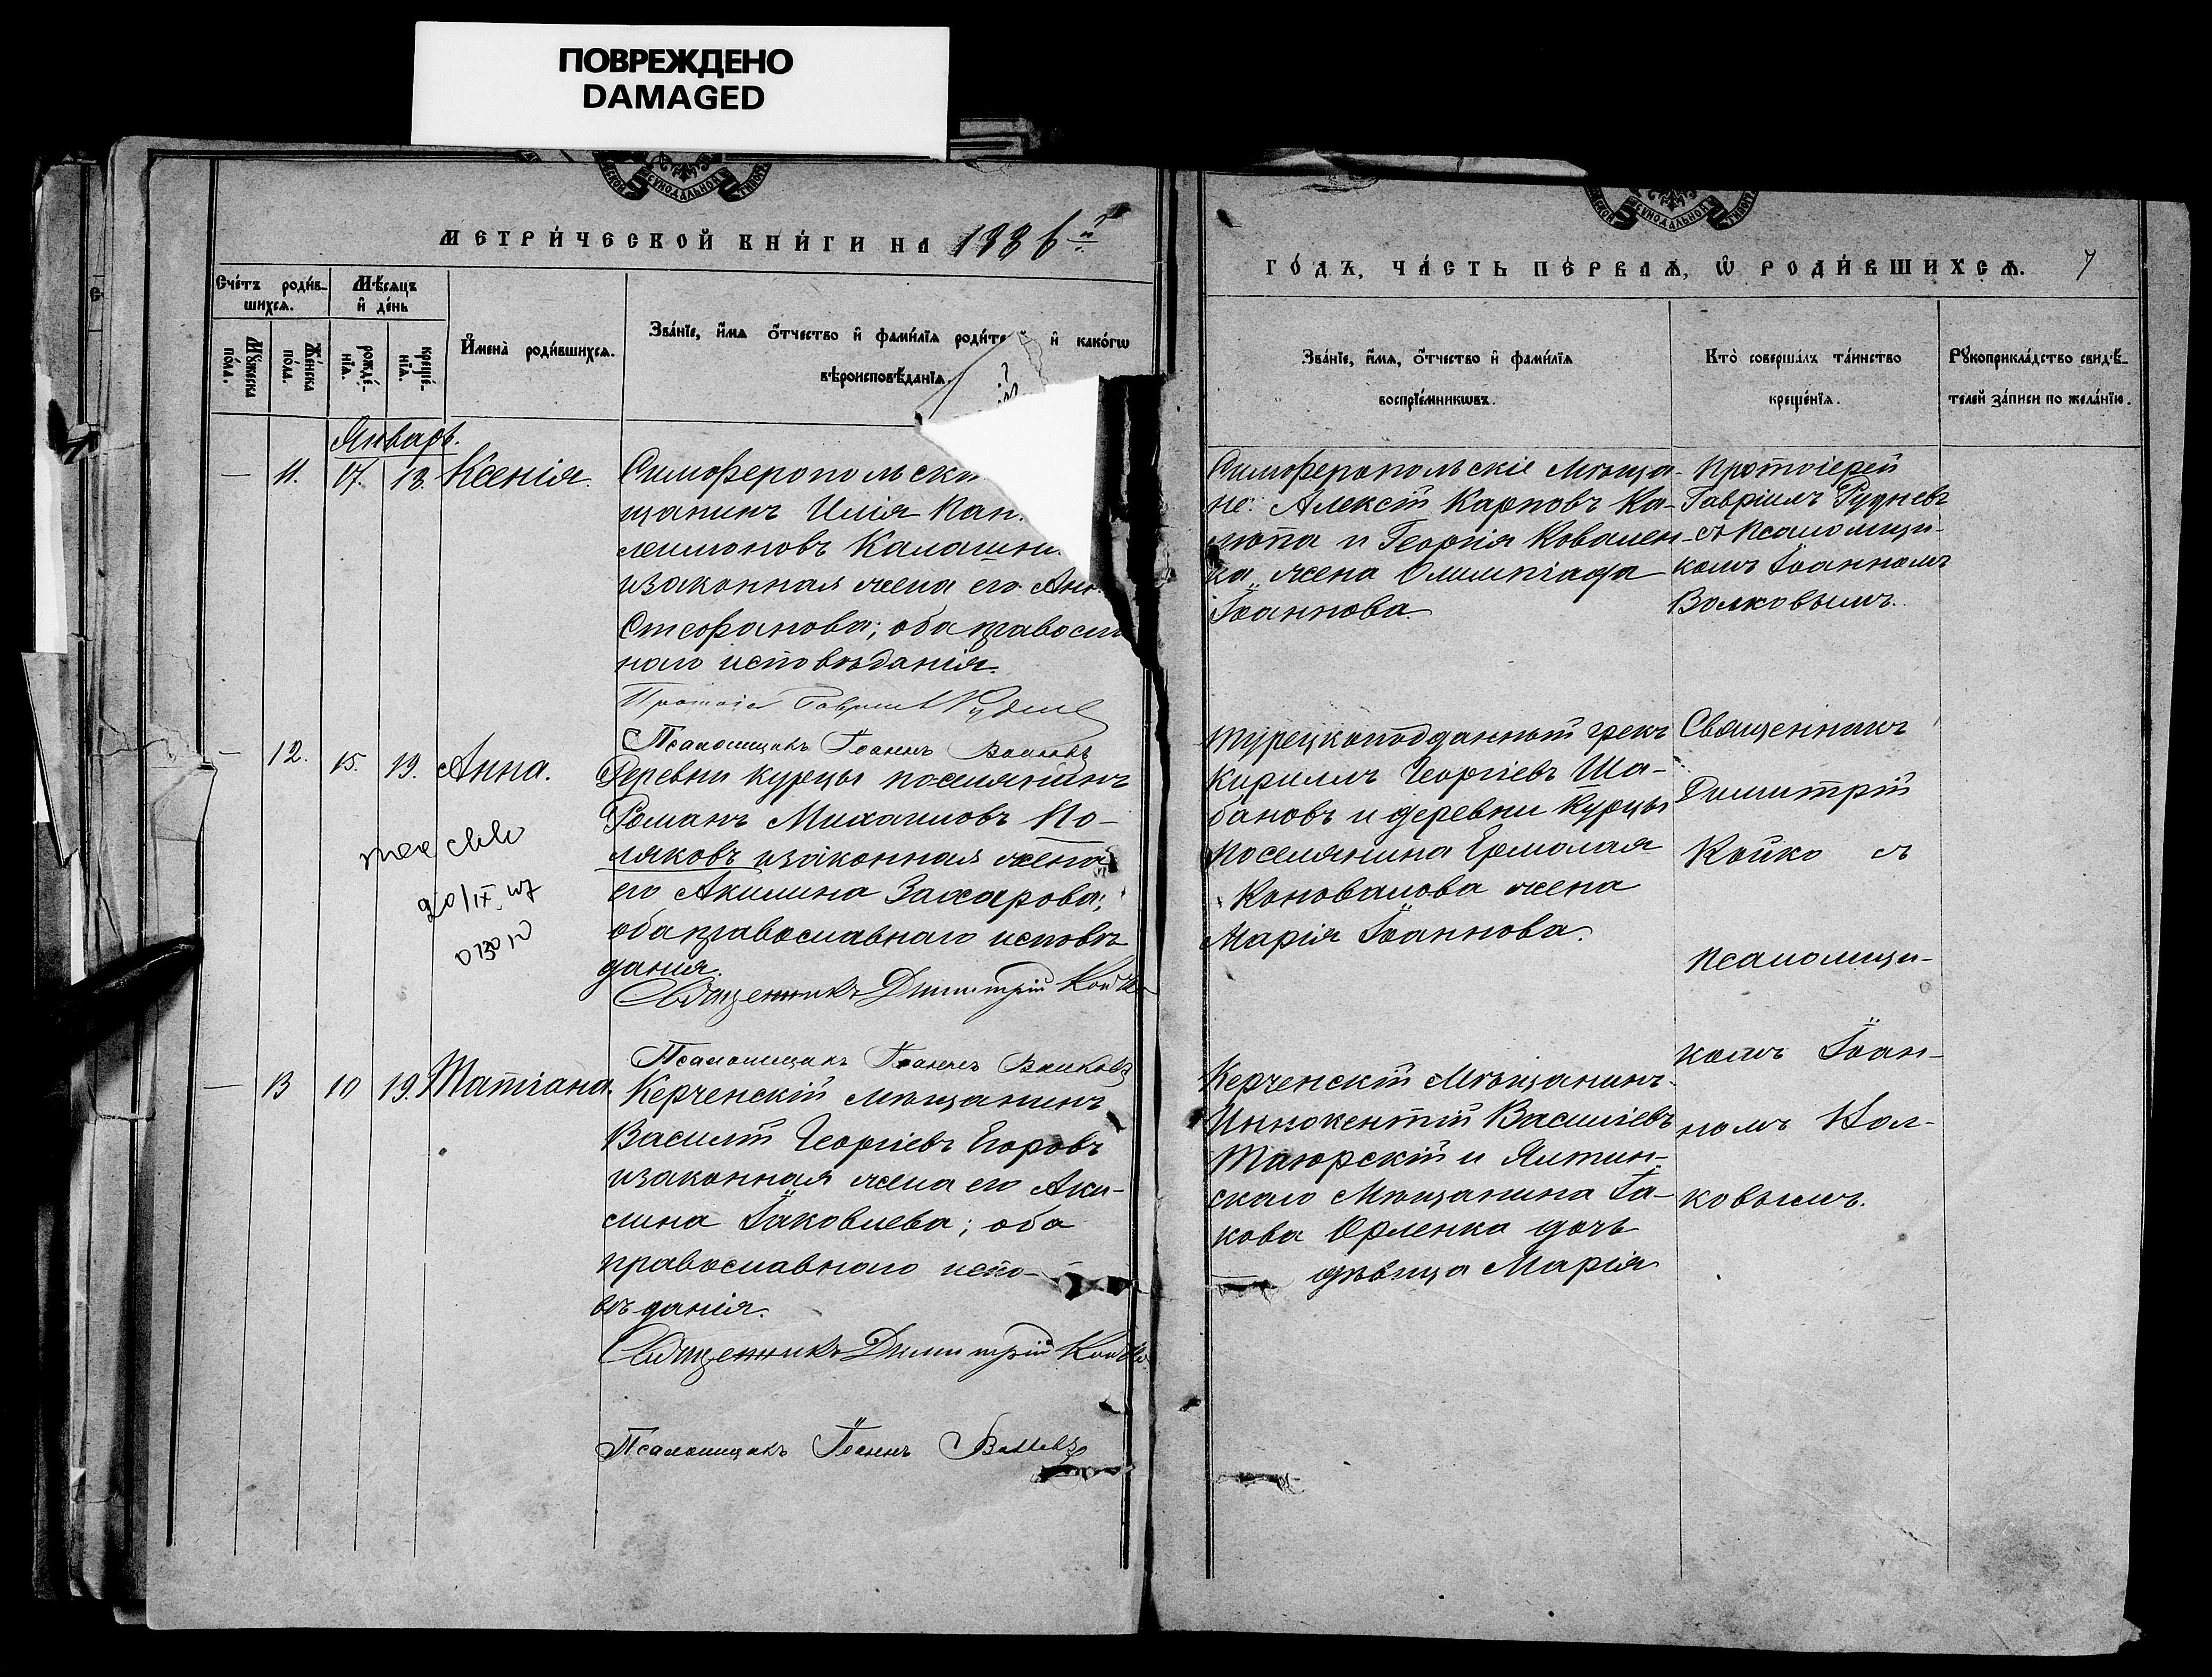 ПОВРЕЖДЕНО
DAMAGED
МЕТРИ́ЧЕСКОЙ КНИ́ГИ НА 1886й
ГО́ДЪ, ЧА́СТЬ ПЕ́РВАѦ, Ѽ РОДИ́ВШИХСѦ. 7
Сче́тъ роди́в-
шихсѧ.
Мѣ́сѧцъ
и҆ де́нь
Мꙋ́жеска
по́ла.
Же́нска
по́ла.
рожде́-
нїѧ.
креще́-
нїѧ.
И҆мена̀ роди́вшихсѧ.
Зва́нїе, и҆́мѧ ѻ҆́тчество и҆ фами́лїѧ роди́те и҆ како́гѡ
вѣроисповѣ́данїѧ.
Зва́нїе, и҆́мѧ, ѻ҆́тчество и҆ фами́лїѧ
воспрїе́мникѡвъ.
Кто̀ соверша́лъ та́инство
креще́нїѧ.
Рꙋкоприкла́дство свидѣ́-
телей за́писи по жела́нїю.
Январь.
— 11. 17. 18. Ксенія.
Симферопольскі
щанинъ Илія Пан
леимоновъ Калашни
изаконная жена его Анн
Стефанова; оба правосл
наго исповѣданія.
Протоіе Гавріилъ Рудне
Псаломщикъ Іоаннъ Волковъ
Симферопольскіе Мѣща-
не: Алексій Карповъ Ка-
люпа и Георгія Ковален-
ка, жена Олимпіада
Іоаннова.
Протоіерей
Гавріилъ Рудневъ
съ Псаломщи-
комъ Іоанномъ
Волковымъ.
— 12. 15. 19. Анна.
Деревни Курцы поселянинъ
Романъ Михаиловъ По-
ляковъ изаконная жена
его Акилина Захарова;
оба православнаго исповѣ
данія.
Священникъ Димитрій Койко
Псаломщикъ Іоаннъ Волковъ
20/IX
Турецкоподданный грекъ
Кириллъ Георгіевъ Ша-
бановъ и деревни Курцы
поселянина Ермолая
Коновалова жена
Марія Іоаннова.
Священникъ
Димитрій
Койко съ
псаломщи-
комъ Іоан-
номъ Вол-
ковымъ.
— 13 10 19. Татіана.
Керченскій мѣщанинъ
Василій Георгіевъ Егоровъ
изаконная жена его Аки-
лина Іаковлева; оба
православнаго испо-
вѣданія.
Священникъ Димитрій Койко
Псаломщикъ Іоаннъ Волковъ
Керченскій Мѣщанинъ
Иннокентій Василіевъ
и Ялтин-
скаго Мѣщанина Іа-
кова Орленка дочь
дѣвица Марія